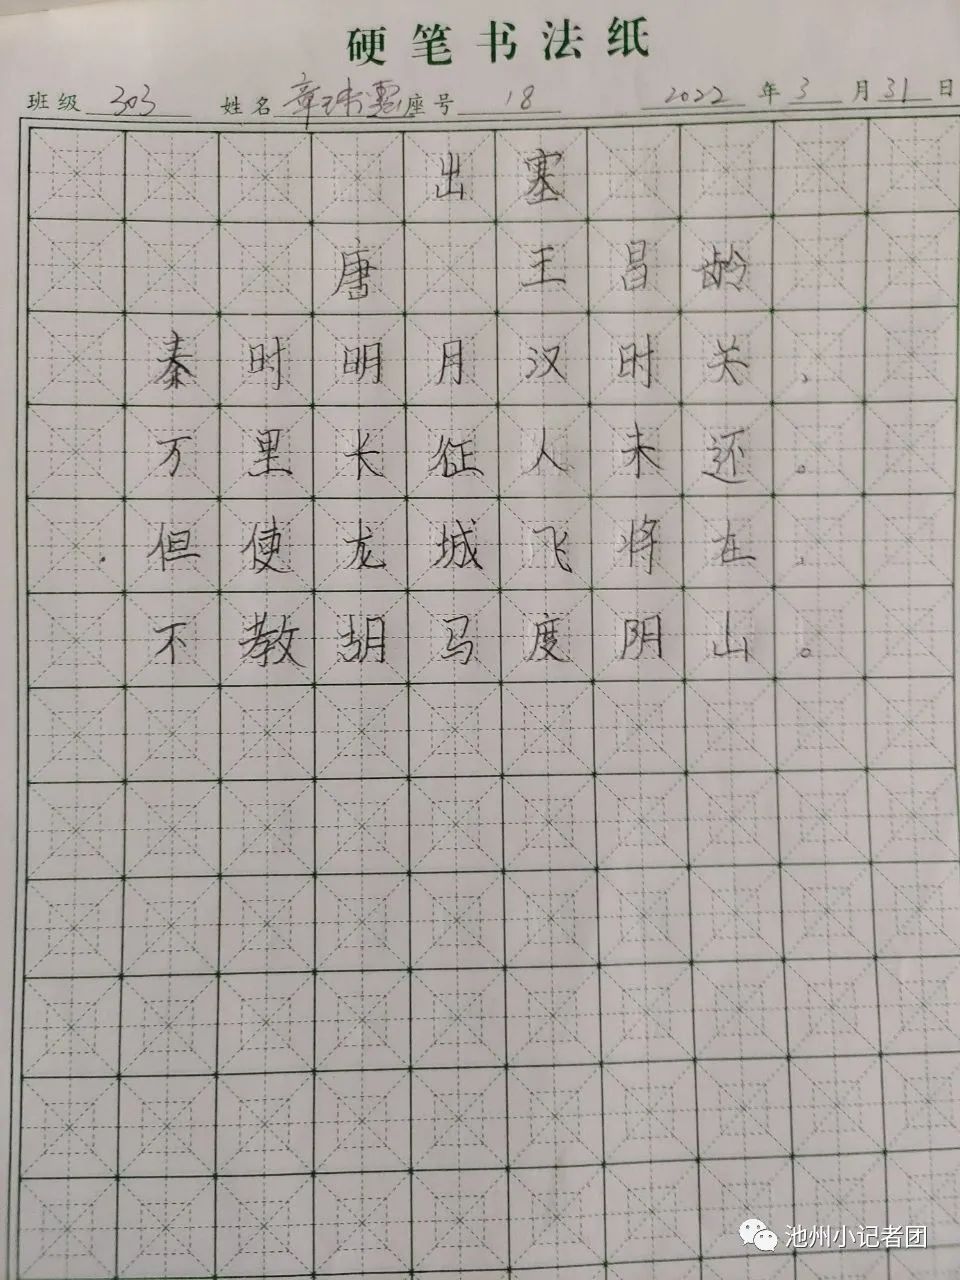 硬笔书法纸
班级 303 姓名 章 座号 18 2022 年 3 月 31 日
出塞
唐 王昌龄
秦时明月汉时关，
万里长征人未还。
但使龙城飞将在，
不教胡马度阴山。
池州小记者团